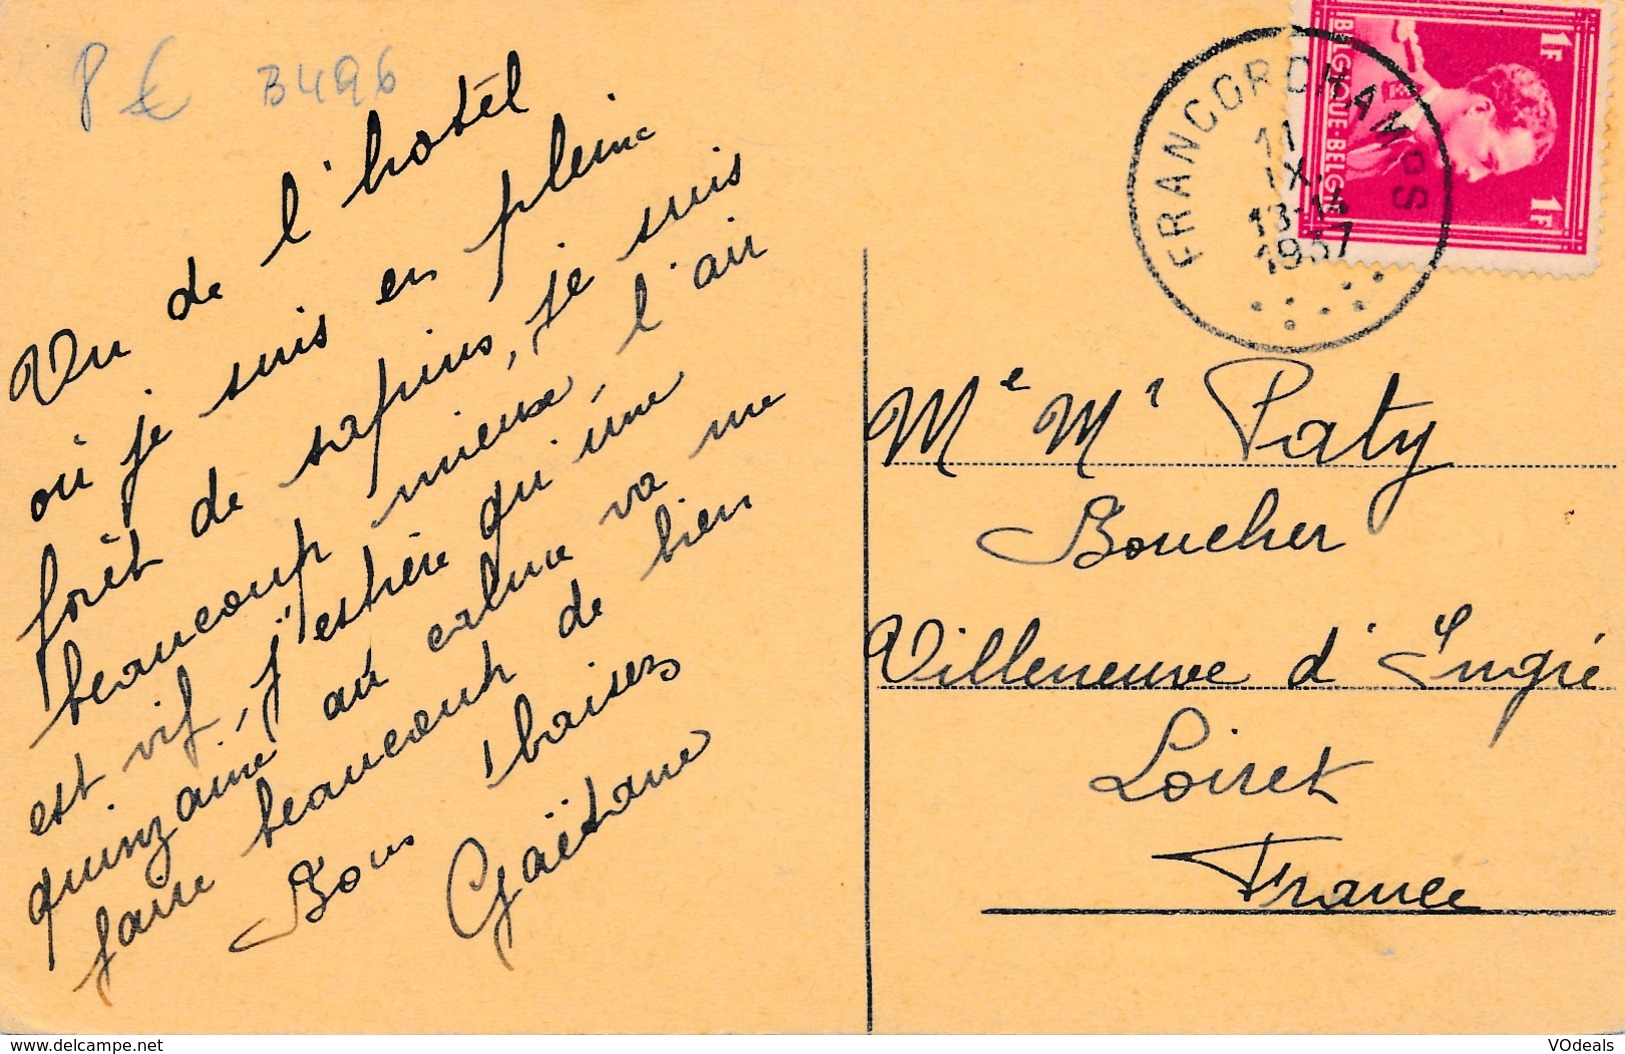 8 €
B496
Vu de l'hotêl
où je suis en pleine
forêt de sapins, je suis
beaucoup mieux, l'air
est vif, j'espère qu'une
quinzaine au calme va me
faire beaucoup de bien
Bons baisers
Gaëtane
FRANCORCHAMPS
11
IX.
13-14
1937
1F
BELGIQUE-BELGI
1F
Me Mr Paty
Boucher
Villeneuve d'Ingré
Loiret
France
www.delcampe.net
VOdeals